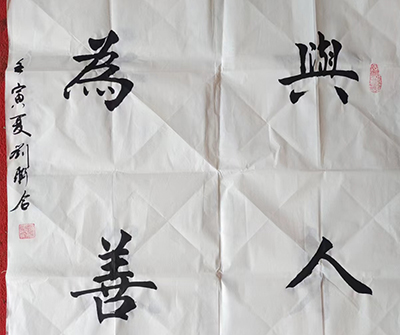 與人
為善
壬寅夏劉勝合